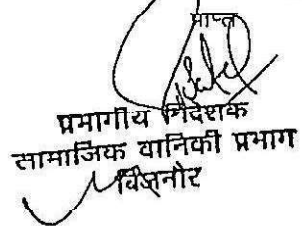 प्राप्त
प्रभागीय निदेशक
सामाजिक वानिकी प्रभाग
बिजनोर